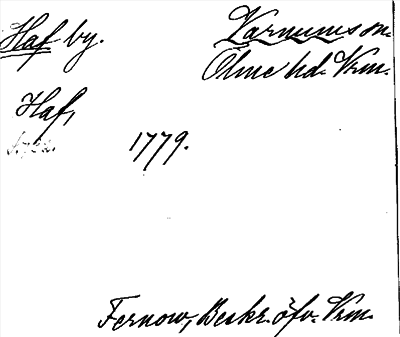 Haf by. Varnums sn.
Ölme hd. Vrm.
Haf,
1779.
Fernow, Beskr. öfv. Vrm.